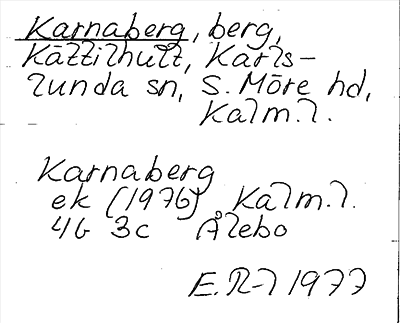 Karnaberg, berg,
Källilhult, Karls-
lunda sn, S. Möre hd,
Kalm.l.
Karnaberg
ek (1976) Kalm.l.
4G 3c Ålebo
E.R-l 1977